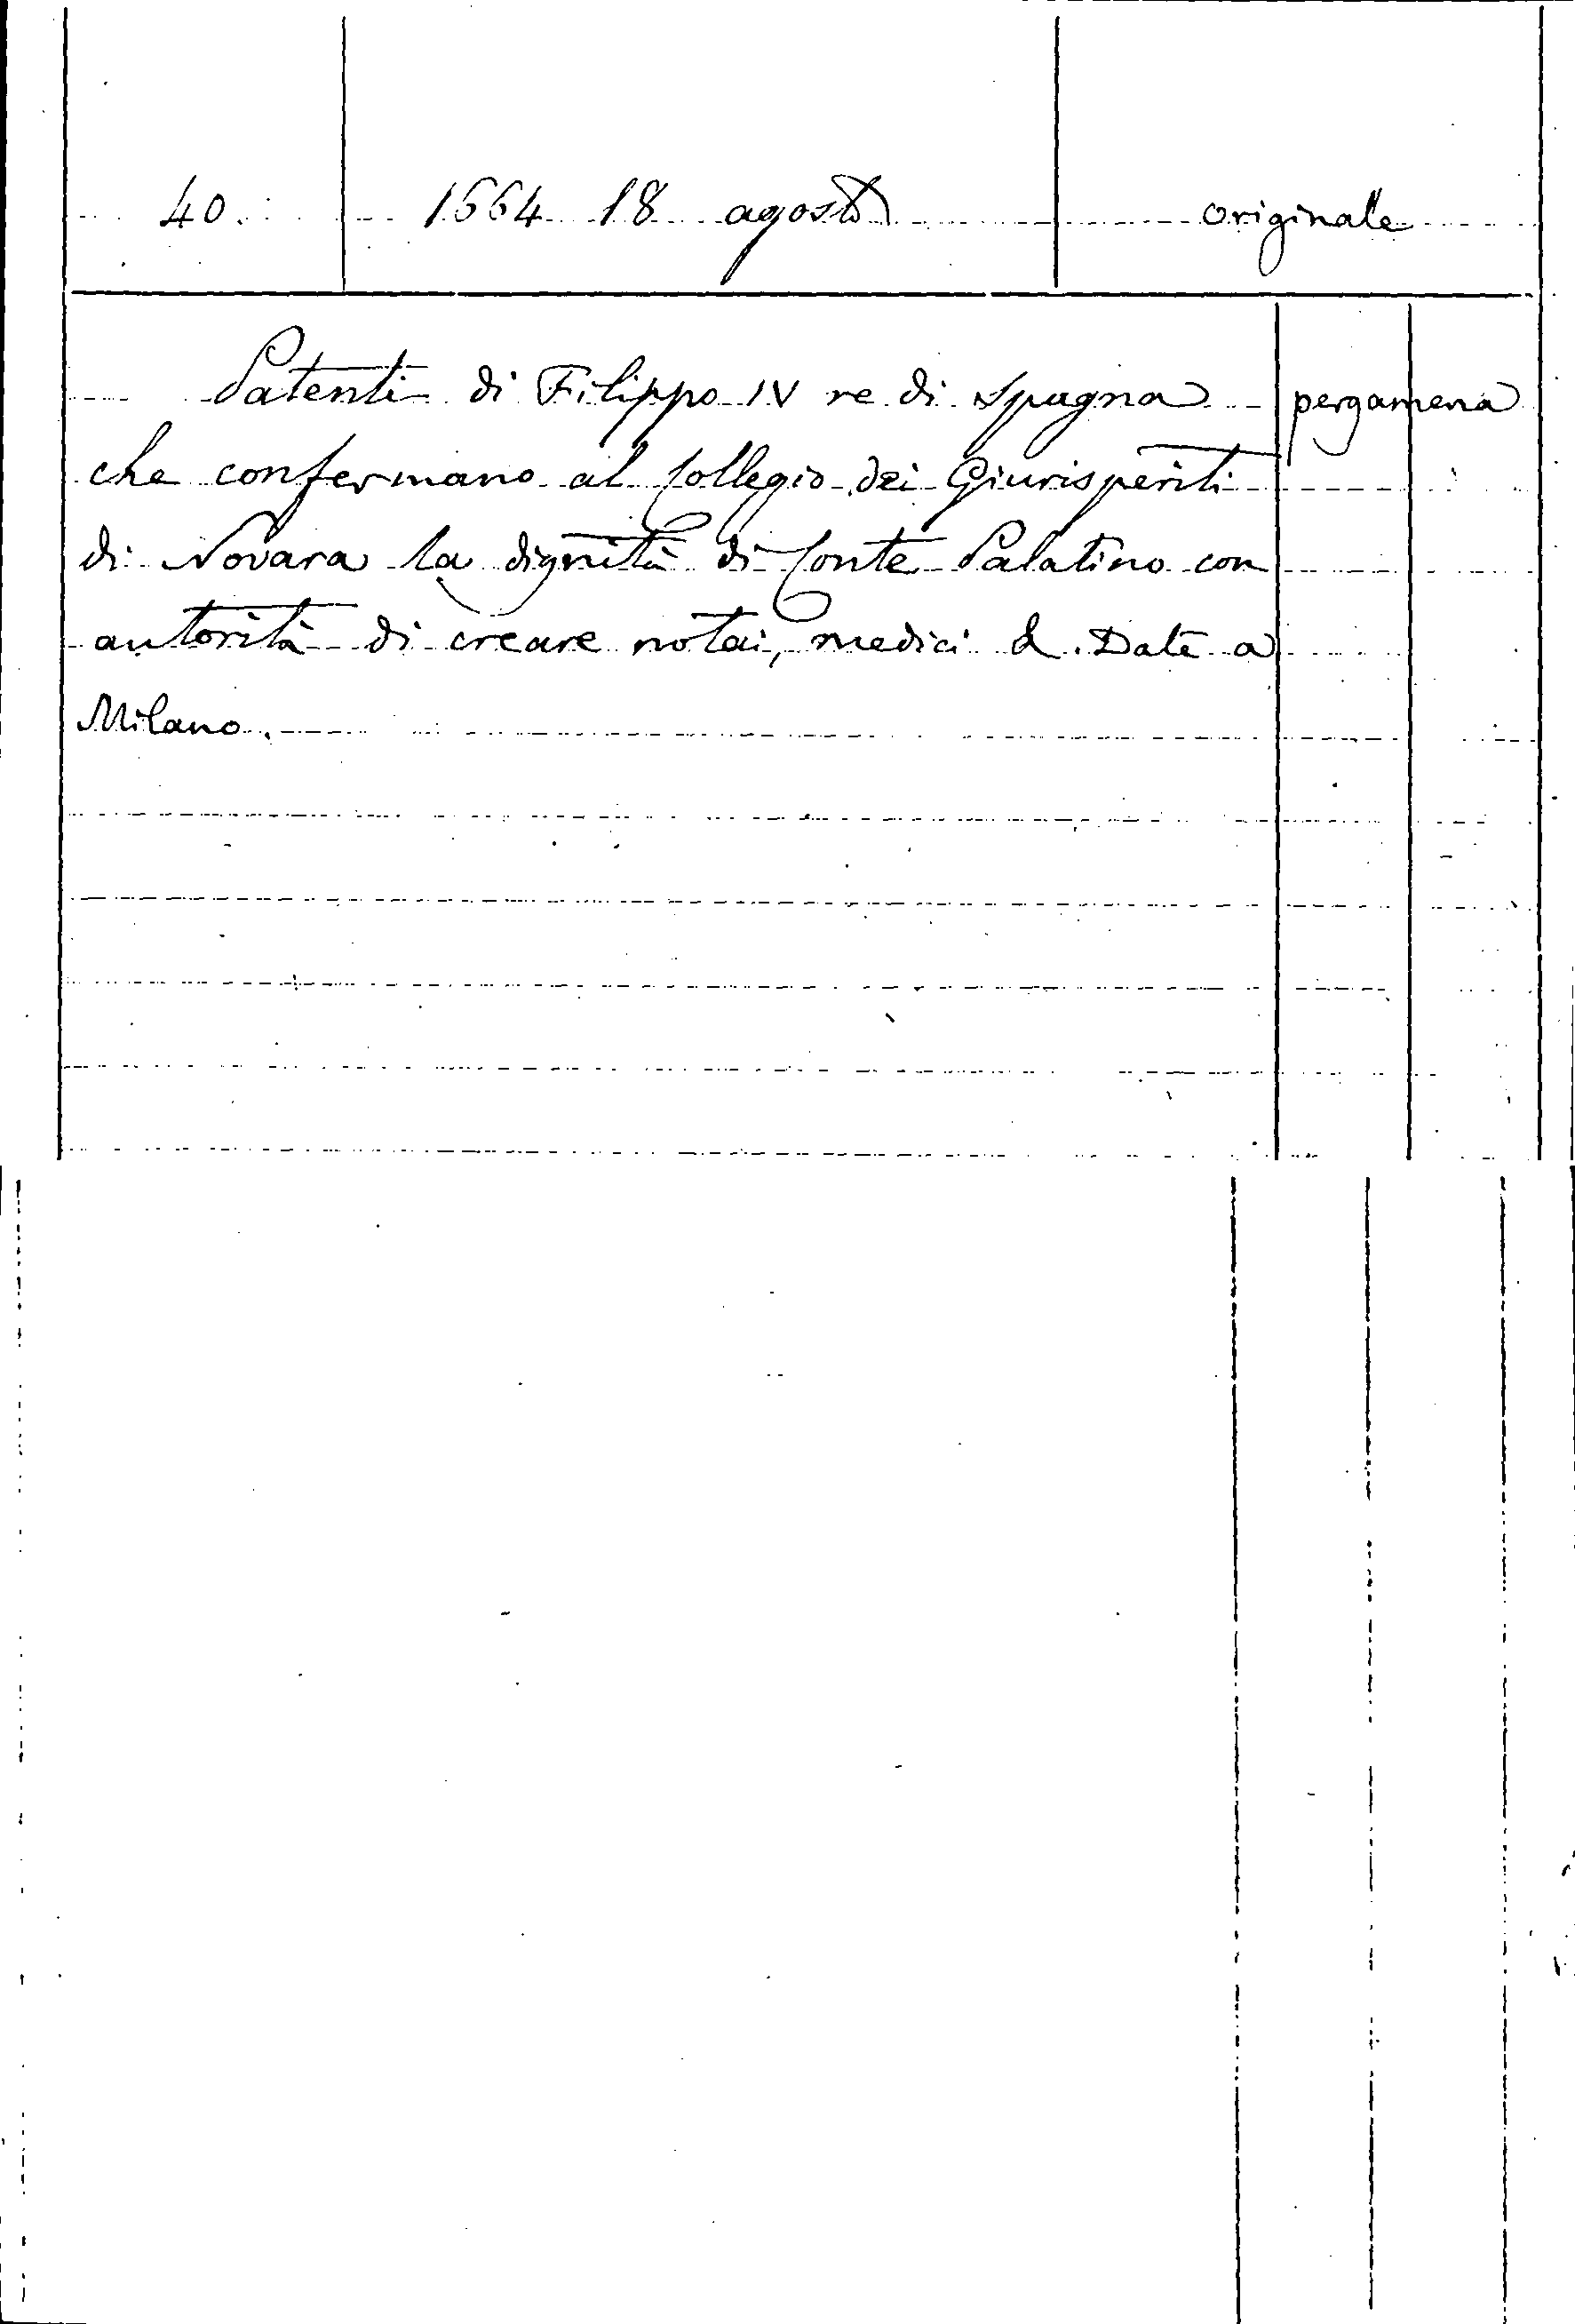 40. 1664 18 agosto originale
Patenti di Filippo IV re di Spagna pergamena
che confermano al Collegio dei Giurisperiti
di Novara la dignità di Conte Palatino con
autorità di creare notai, medici &. Date a
Milano.